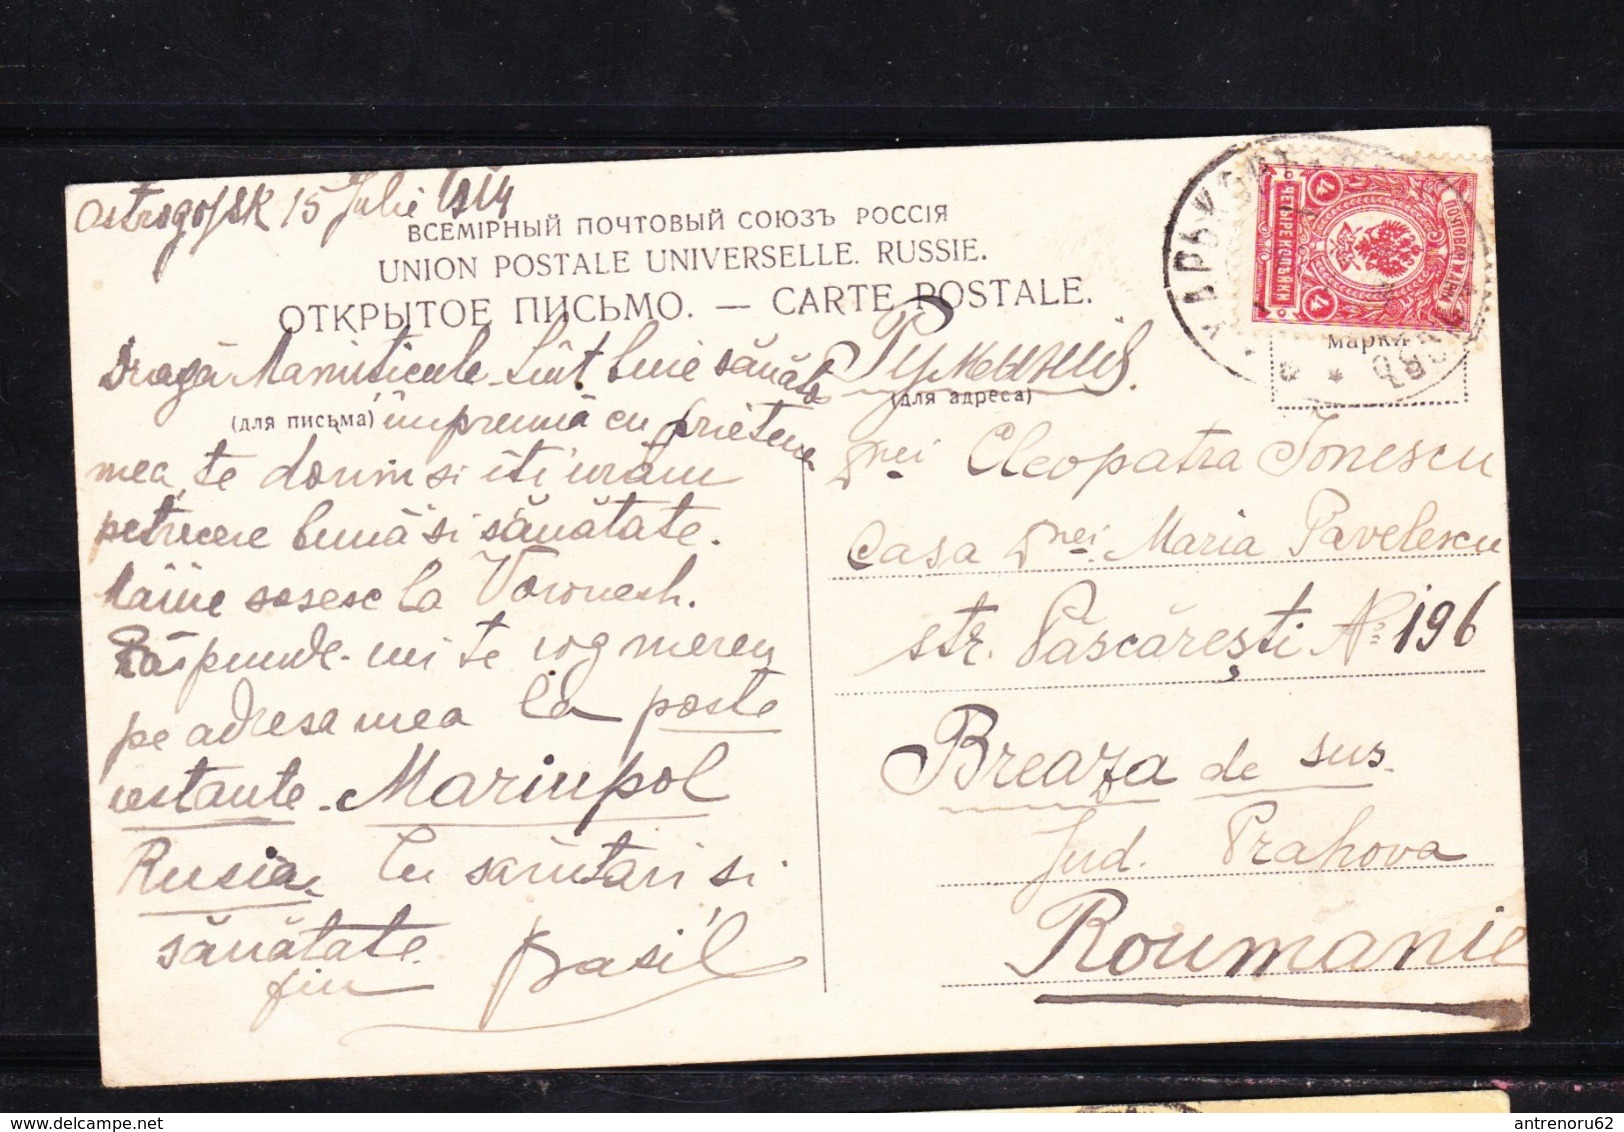 Ostrogojsk 15 Julie 1914
ВСЕМІРНЫЙ ПОЧТОВЫЙ СОЮЗЪ РОССІЯ
UNION POSTALE UNIVERSELLE. RUSSIE.
ОТКРЫТОЕ ПИСЬМО. — CARTE POSTALE.
Dragă Mamiticule. Sînt bine sănătos
(для письма)
împreună cu prietenu
mea, te dorim si iti urăm
petrecere bună si sănătate.
Mâine sosesc la Voronesh.
Răspunde-mi te rog mereu
pe adresa mea la poste
restante. Mariupol
Rusia. Cu sărutari si
sănătate.
fiu Basil
Румынія.
(для адреса)
марки
Dnei Cleopatra Ionescu
Casa Dnei Maria Pavelescu
str. Păscărești No 196
Breaza de sus.
Jud. Prahova
Roumanie
ПОЧТОВАЯ МАРКА
ЧЕТЫРЕ КОПѢЙКИ
4
4
antrenoru62